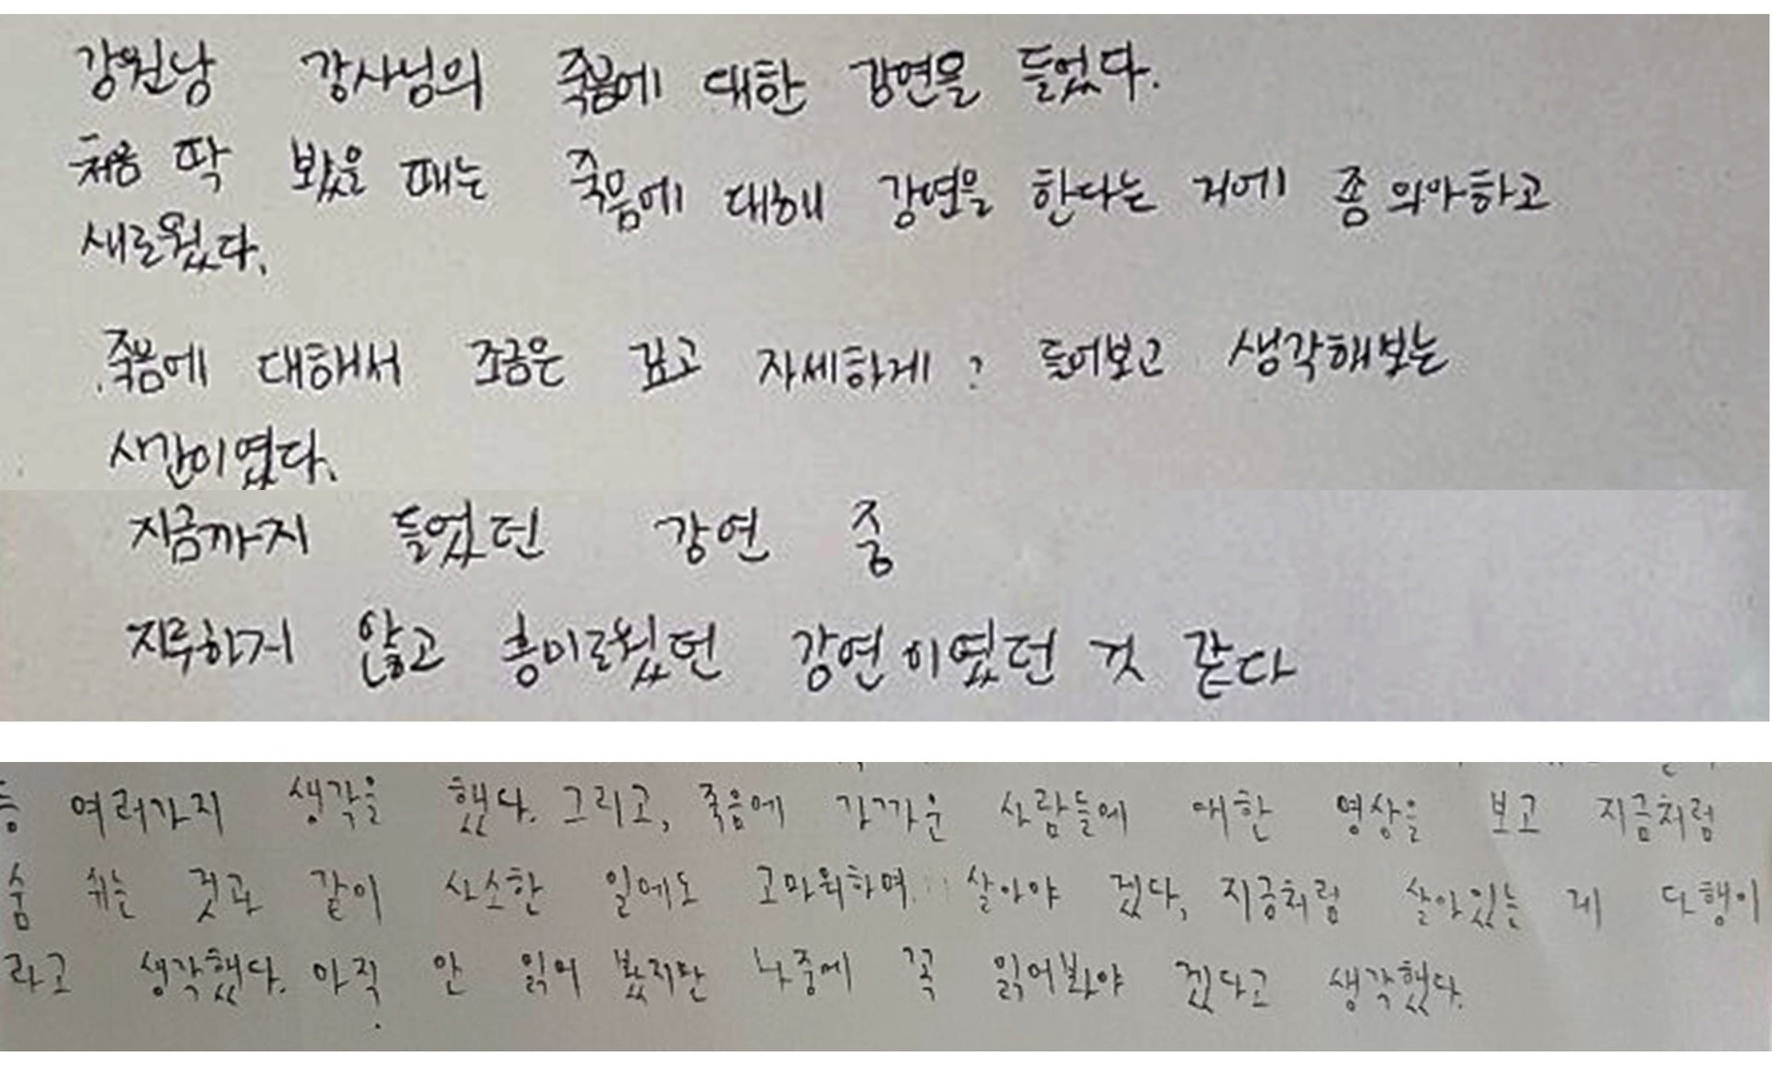 강원남 강사님의 죽음에 대한 강연을 들었다.
처음 딱 봤을 때는 죽음에 대해 강연을 한다는 거에 좀 의아하고
새로웠다.
죽음에 대해서 조금은 깊고 자세하게? 들어보고 생각해보는
시간이였다.
지금까지 들었던 강연 중
지루하지 않고 흥미로웠던 강연이였던 것 같다
등 여러가지 생각을 했다. 그리고, 죽음에 가까운 사람들에 대한 영상을 보고 지금처럼
숨 쉬는 것과 같이 사소한 일에도 고마워하며 살아야 겠다, 지금처럼 살아있는 게 다행이
라고 생각했다. 아직 안 읽어 봤지만 나중에 꼭 읽어봐야 겠다고 생각했다.